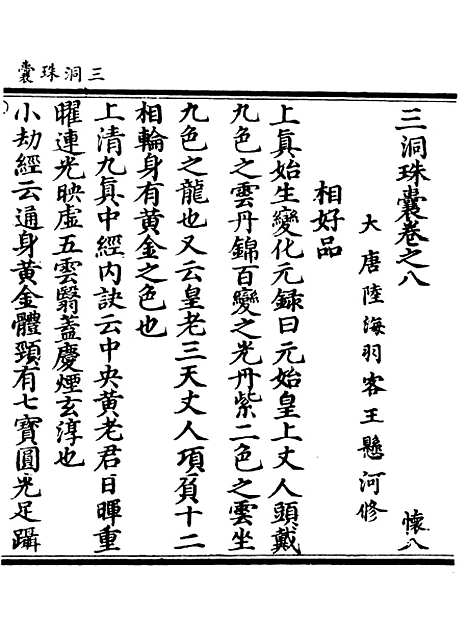 三洞珠囊
三洞珠囊卷之八 懷八
大唐陸海羽客王懸河修
相好品
上眞始生變化元録曰元始皇上丈人頭戴
九色之雲丹錦百變之光丹紫二色之雲坐
九色之龍也又云皇老三天丈人項負十二
相輪身有黃金之色也
上清九眞中經內訣云中央黃老君日暉重
曜連光映虛五雲翳蓋慶煙玄淳也
小劫經云通身黃金體頸有七寶圓光足躡